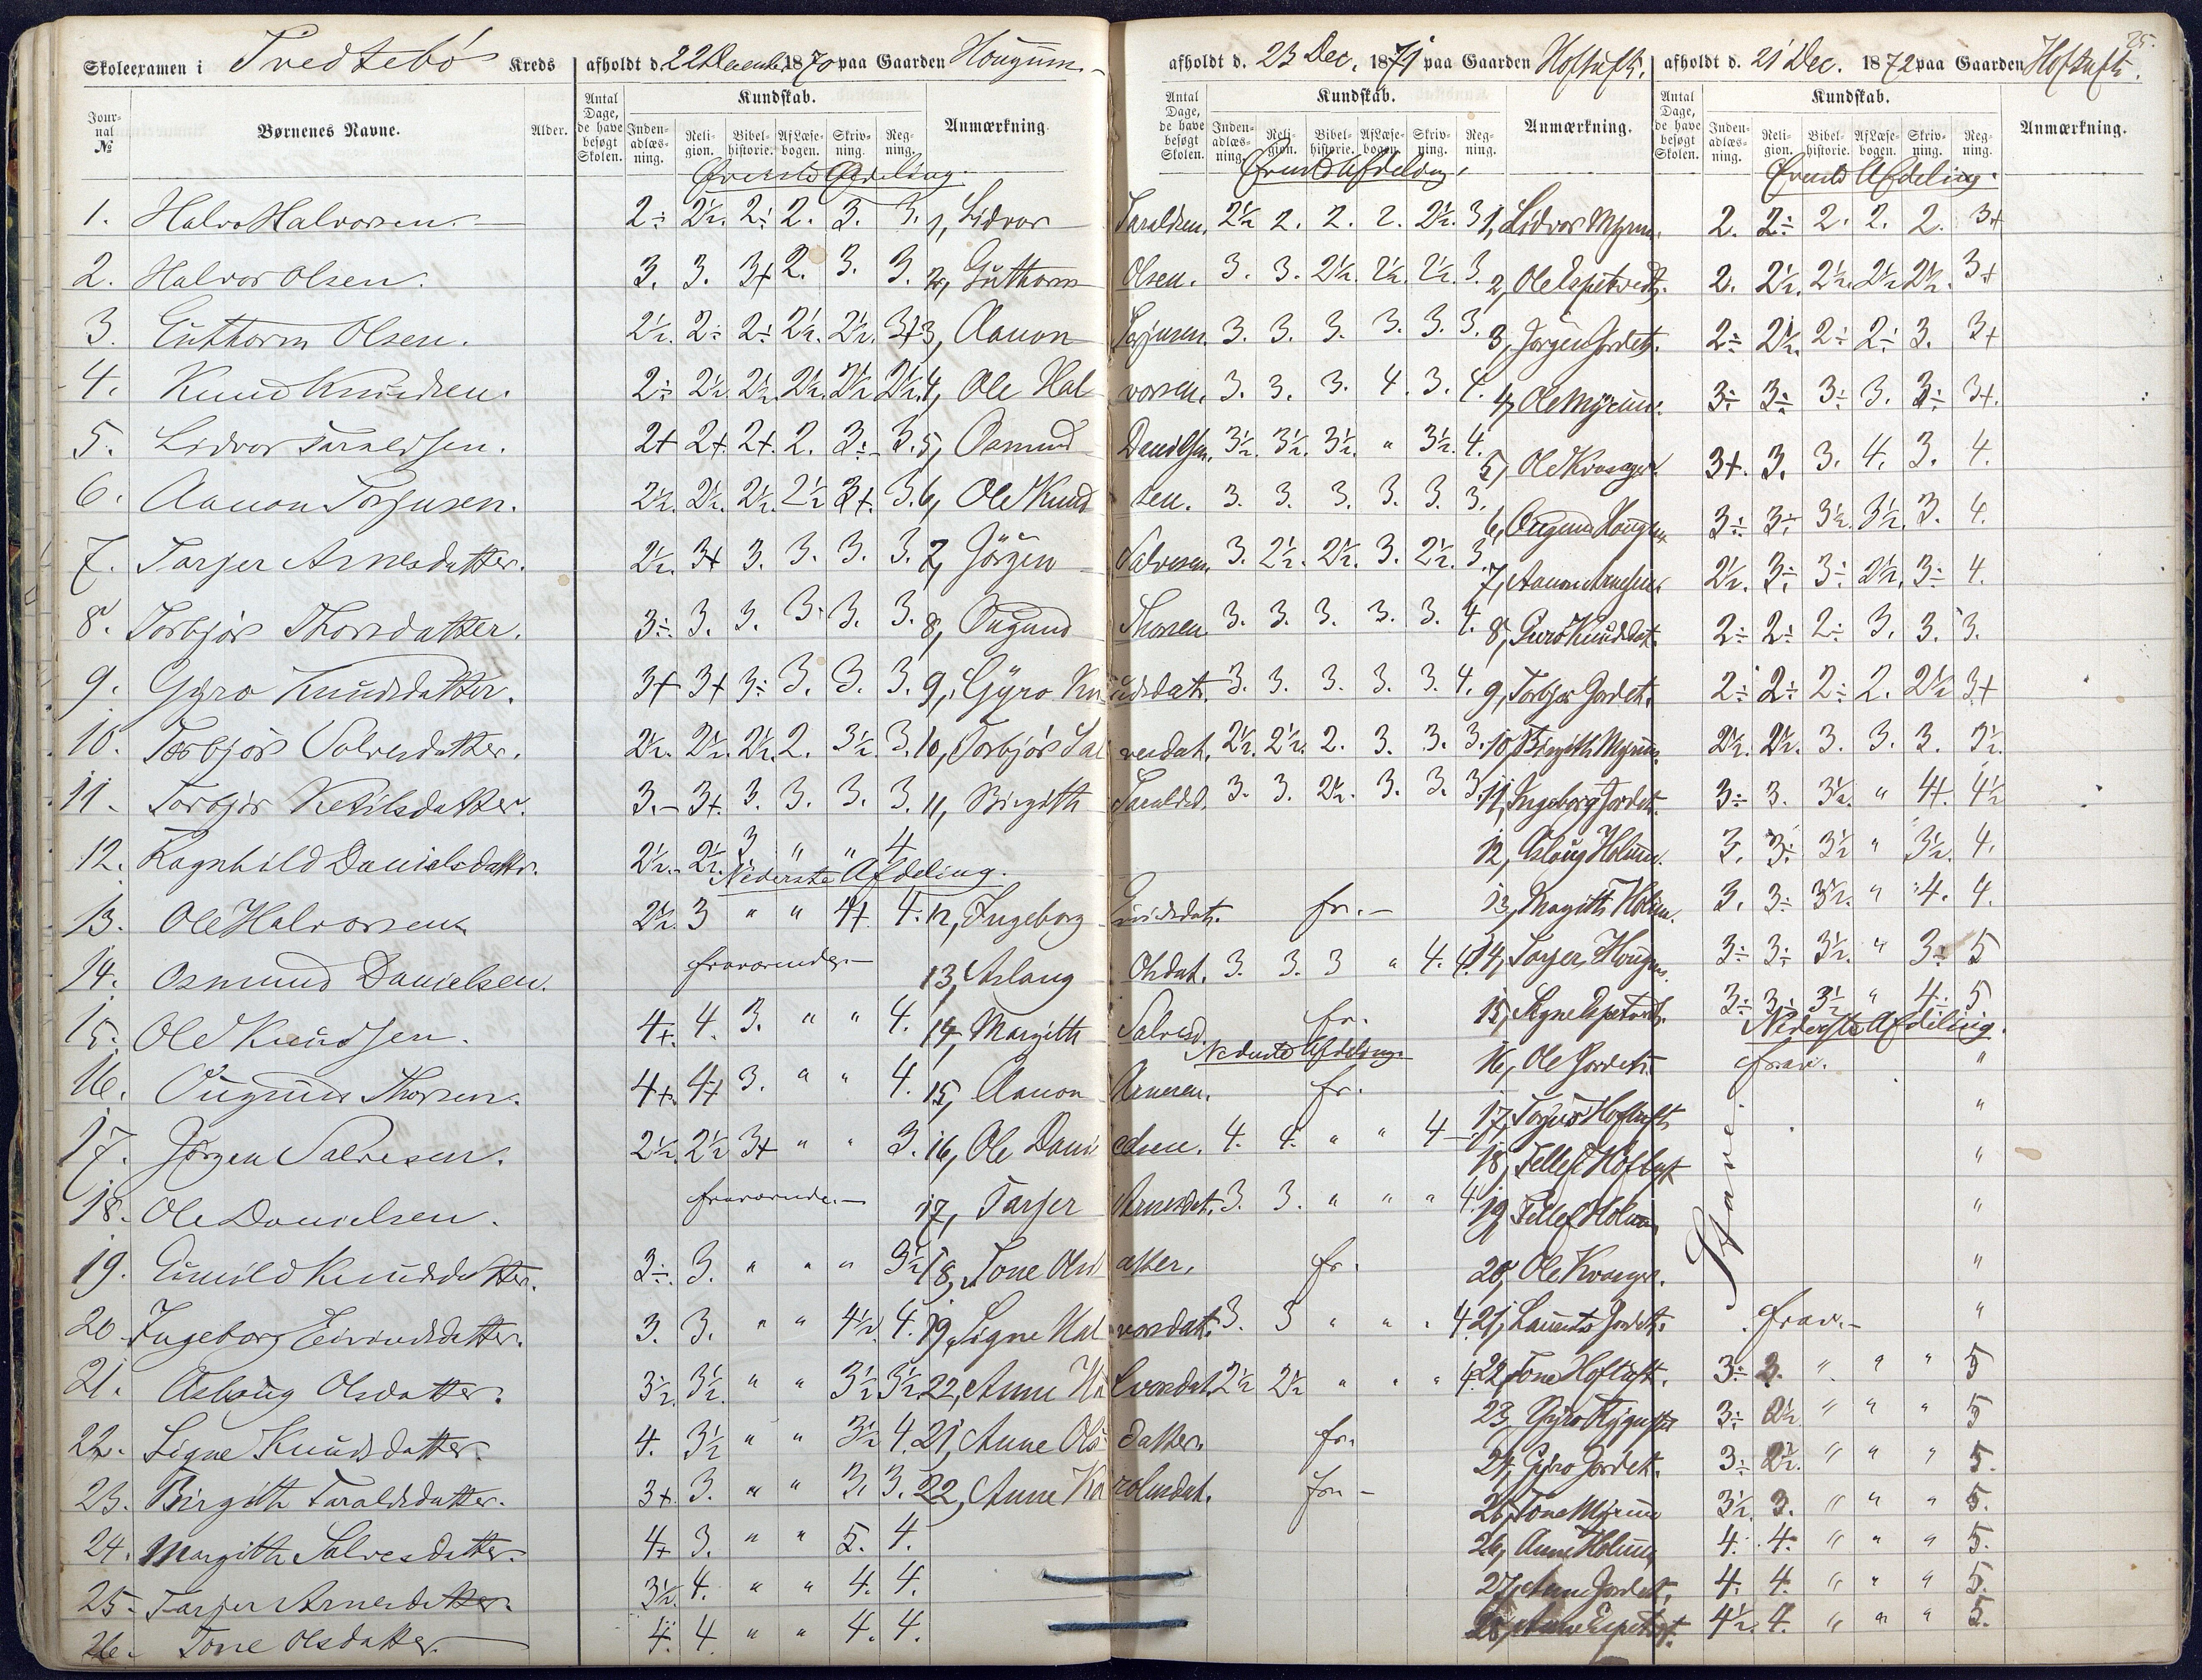 Skoleexamen i Tvedtebö Kreds afholdt d. 22 December 1870 paa Gaarden Hougum.
Jour-nal № Børnenes Navne. Alder. Antal Dage, de have besøgt Skolen. Kundskab. Inden-adlæs-ning. Reli-gion. Bibel-historie. Af Læse-bogen. Skriv-ning. Reg-ning. Anmærkning.
Øverste Afdeling.
1. Halvor Halvorsen. 2÷ 2½. 2÷ 2. 3. 3.
2. Halvor Olsen. 3. 3. 3+ 2. 3. 3.
3. Guthorm Olsen. 2½. 2÷ 2÷ 2½. 2½. 3+
4. Knud Knudsen. 2÷ 2½. 2½. 2½. 2½ 2½.
5. Lidvor Taraldsen. 2+ 2+. 2+. 2. 3÷ 3.
6. Aanon Torjusen. 2½. 2½. 2½. 2½ 3+. 3.
7. Tarjer Arnesdatter. 2½. 3+ 3. 3. 3. 3.
8. Torbjör Thorsdatter. 3÷. 3. 3. 3. 3. 3.
9. Gyro Knudsdatter. 3+ 3+ 3÷ 3. 3. 3.
10. Torbjör Salvesdatter. 2½. 2½. 2½. 2. 3½. 3.
11. Torbjör Ketilsdatter. 3.- 3+. 3. 3. 3. 3.
12. Ragnhild Danielsdatter. 2½.- 2½. 3 " " 4
Nederste Afdeling.
13. Ole Halvorsen. 2½. 3 " " 4+. 4.
14. Osmund Danielsen. fraværende.
15. Ole Knudsen. 4+. 4. 3. " " 4.
16. Ougund Thorsen. 4+. 4+ 3. " " 4.
17. Jörgen Salvesen. 2½. 2½ 3+ " " 3.
18. Ole Danielsen. fraværende.
19. Gunild Knudsdatter. 3÷. 3. " " " 3½
20. Ingeborg Eivindsdatter. 3. 3. " " 4½. 4.
21. Aslaug Olsdatter. 3½. 3½. " " 3½ 3½
22. Signe Knudsdatter. 4. 3½ " " 3½ 4.
23. Birgith Taraldsdatter. 3+. 3. " " 3. 3.
24. Margith Salvesdatter. 4+ 3. " " 5. 4.
25. Tarjer Arnesdatter. 3½. 4. " " 4. 4.
26. Tone Olsdatter. 4. 4 " " 4. 4.
afholdt d. 23 Dec. 1871 paa Gaarden Hoftuft.
Antal Dage, de have besøgt Skolen. Kundskab. Inden-adlæs-ning. Reli-gion. Bibel-historie. Af Læse-bogen. Skriv-ning. Reg-ning. Anmærkning.
Øverste Afdeling.
1, Lidvor Taraldsen. 2½ 2. 2. 2. 2½. 3
2, Guthorm Olsen. 3. 3. 2½. 2½. 2½. 3.
3, Aanon Torjusen. 3. 3. 3. 3. 3. 3.
4, Ole Halvorsen. 3. 3. 3. 4. 3. 4.
5, Osmund Danielsen. 3½. 3½. 3½. " 3½. 4.
6, Ole Knudsen. 3. 3. 3. 3. 3. 3.
7, Jörgen Salvesen. 3. 2½. 2½. 3. 2½. 3.
8, Ougund Thorsen. 3. 3. 3. 3. 3. 4.
9, Gyro Knudsdatr. 3. 3. 3. 3. 3. 4.
10, Torbjör Salvesdat. 2½. 2½. 2. 3. 3. 3.
11, Birgith Taraldsd. 3. 3. 2½. 3. 3. 3
12, Ingeborg Eivindsdatr. fr.
13, Aslaug Olsdat. 3. 3. 3 " 4. 4.
14, Margith Salvesd. fr.
Nederste Afdeling.
15, Aanon Arnesen. fr.
16, Ole Danielsen. 4. 4. " " 4
17, Tarjer Arnesdat. 3. 3. " " " 4
18, Tone Olsdatter. fr.
19, Signe Halvorsdat. 3. 3 " " " 4
22, Anne Halvorsdat. 2½ 2½ " " " 4
21, Anne Olsdatter. fr.
22, Anne Karolusdat. fr.
25.
afholdt d. 21 Dec. 1872 paa Gaarden Hoftuft.
Antal Dage, de have besøgt Skolen. Kundskab. Inden-adlæs-ning. Reli-gion. Bibel-historie. Af Læse-bogen. Skriv-ning. Reg-ning. Anmærkning.
Øverste Afdeling.
1, Lidvor Myrum. 2. 2÷ 2. 2. 2. 3+
2, Ole Espetvedt. 2. 2½. 2½. 2½ 2½. 3+
3, Jörgen Jordet. 2÷ 2½. 2÷ 2÷ 3. 3+
4, Ole Myrum. 3÷ 3÷ 3÷ 3. 3÷ 3+.
5, Ole Kvaager. 3+. 3. 3. 4. 3. 4.
6, Ougund Hougum 3÷ 3÷ 3½. 3½. 3. 4.
7, Aanon 2½. 3÷ 3÷ 2½. 3÷ 4.
8, Guro Knudsdat. 2÷ 2÷ 2÷ 3. 3. 3.
9, Torbjør Jordet. 2÷ 2÷ 2÷ 2. 2½ 3+
10, Birgith Myrum. 2½. 2½. 3. 3. 3. 3½.
11, Ingeborg Jordet. 3÷ 3. 3½. " 4+. 4½
12, Aslaug Holum. 3. 3÷ 3½ " 3½. 4.
13, Margith Holum. 3. 3÷ 3½. " 4. 4.
14, Tarjer Hougum. 3÷ 3÷ 3½. " 3÷ 5
15, Signe Espetvedt. 3÷ 3÷ 3½ " 4÷ 5
Nederste Afdeling.
16, Ole Jordet. frav. "
17, Torjus Hoftuft "
18, Tellef Hoftuft "
19, Tellef Holum "
20, Ole Kvaager. "
21, Laurents Jordet. frav. "
22, Tone Hoftuft. 3÷ 3. " " " 5
23, Gyro 3÷ 2½ " " " 5
24, Gyro Jordet. 3÷ 2½. " " " 5.
25, Tone Myrum 3½. 3. " " " 5.
26, Anne Holum 4. 4. " " " 5.
27, Anne Jordet. 4. 4. " " " 5.
28, Anne Espetvet. 4½. 4. " " " 5.